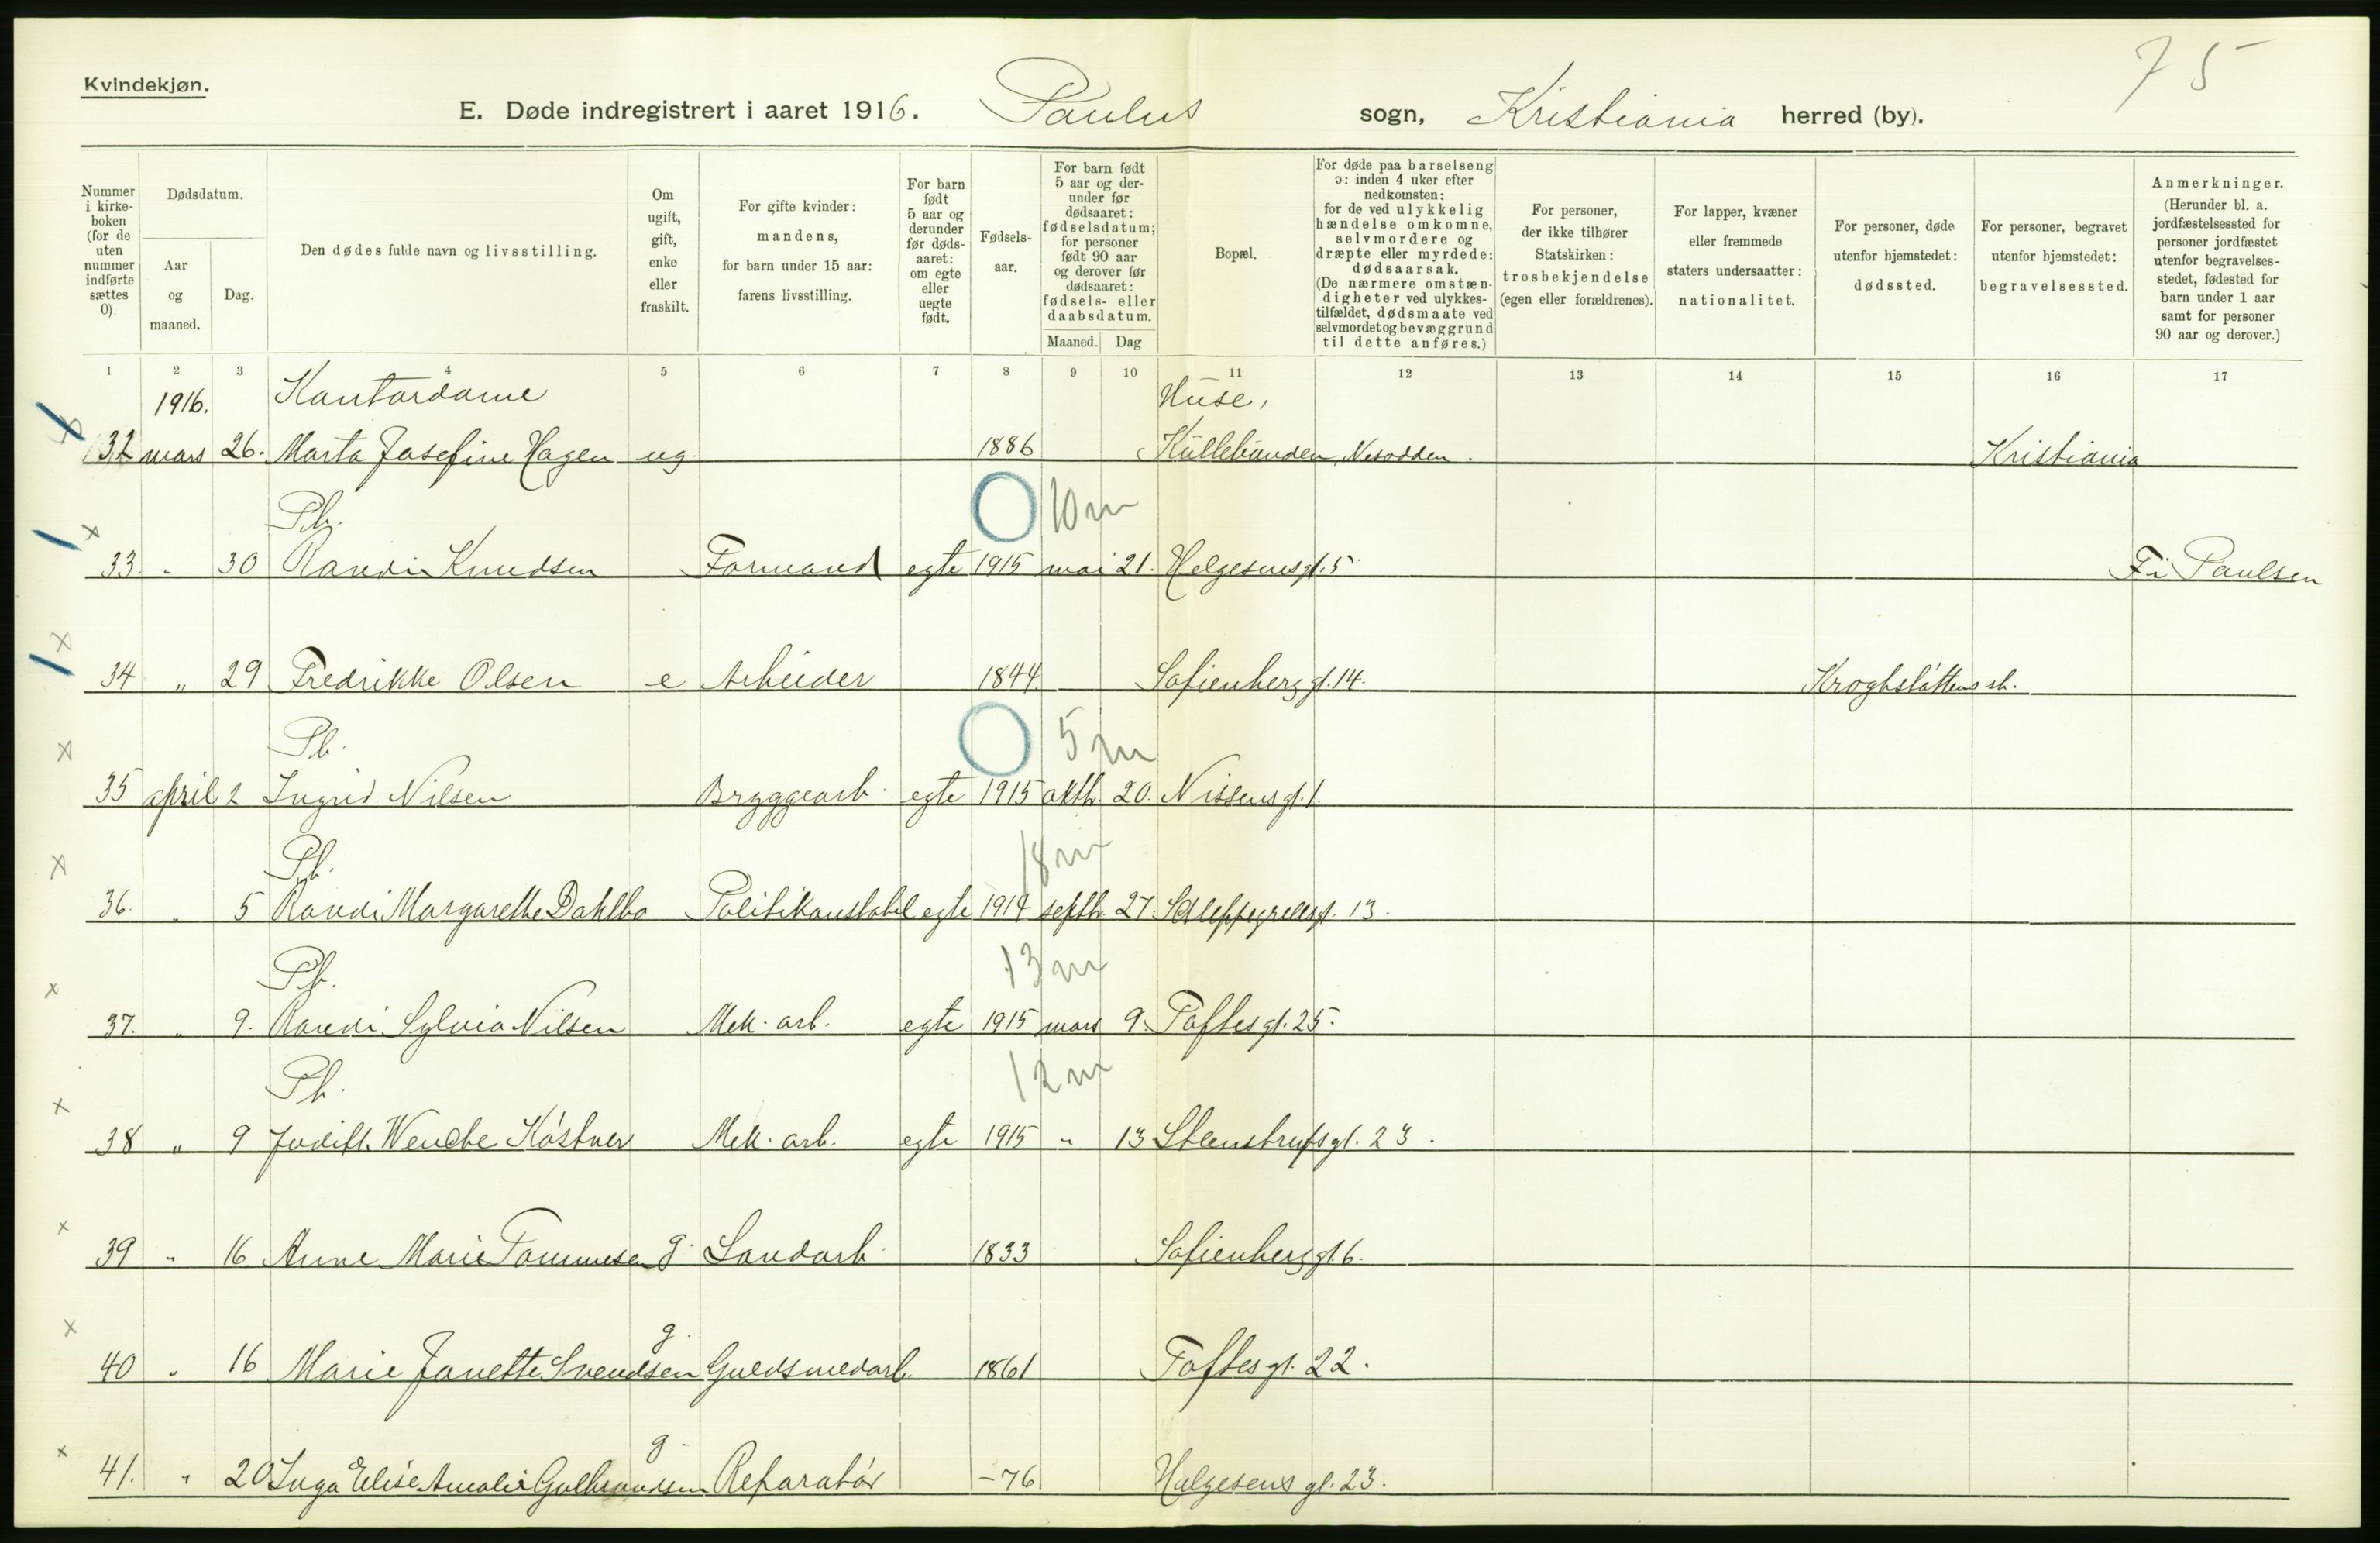 75
Kvindekjøn.
E. Døde indregistrert i aaret 1916. Paulus sogn, Kristiania herred (by).
Nummer i kirkeboken (for de uten nummer indførte sættes 0).
Dødsdatum.
Aar og maaned.
Dag.
Den dødes fulde navn og livsstilling.
Om ugift, gift, enke eller fraskilt.
For gifte kvinder: mandens, for barn under 15 aar: farens livsstilling.
For barn født 5 aar og derunder før dødsaaret: om egte eller uegte født.
Fødselsaar.
For barn født 5 aar og derunder før dødsaaret: fødselsdatum; for personer født 90 aar og derover før dødsaaret: fødsels- eller daabsdatum.
Maaned. Dag
Bopæl.
For døde paa barselseng ɔ: inden 4 uker efter nedkomsten: for de ved ulykkelig hændelse omkomne, selvmordere og dræpte eller myrdede: dødsaarsak. (De nærmere omstændigheter ved ulykkestilfældet, dødsmaate ved selvmordet og bevæggrund til dette anføres.)
For personer, der ikke tilhører Statskirken: trosbekjendelse (egen eller forældrenes).
For lapper, kvæner eller fremmede staters undersaatter: nationalitet.
For personer, døde utenfor hjemstedet: dødssted.
For personer, begravet utenfor hjemstedet: begravelsessted.
Anmerkninger. (Herunder bl. a. jordfæstelsessted for personer jordfæstet utenfor begravelsesstedet, fødested for barn under 1 aar samt for personer 90 aar og derover.)
1 2 3 4 5 6 7 8 9 10 11 12 13 14 15 16 17
1916. Kontordame Huse,
32 mars 26. Marta Josefine Hagen ug 1886 Nesodden. Kristiania
Pb. 10 m
33. " 30 Randi Knudsen Formand egte 1915 mai 21. Helgesensgt. 5 Fr Paulsen
34 " 29 Fredrikke Olsen e Arbeider 1844 Sofienberggt. 14. Kroghstøttens sh.
Pb. 5 m
35 april 2 Ingrid Nilsen Bryggearb. egte 1915 oktb. 20. Nissens gt. 1.
Pb. 18 m
36. " 5 Randi Margarethe Dahlbo Politikonstabel egte 1914 septb. 27. Schleppegrellsgt. 13.
Pb. 13 m
37. " 9. Randi Sylvia Nilsen Mek. arb. egte 1915 mars 9. Toftesgt. 25.
Pb. 12 m
38 " 9 Judith Wenche Köstner Mek. arb. egte 1915 " 13 Steenstrupsgt. 23.
39 " 16 Anne Marie Tommesen g. Landarb. 1833 Sofienberggt. 6.
40 " 16 Marie Janette Svendsen g. Guldsmedarb. 1861 Toftesgt. 22.
41. " 20 Inga Elise Amalie Gulbrandsen g. Reparatör -76 Helgesens gt. 23.